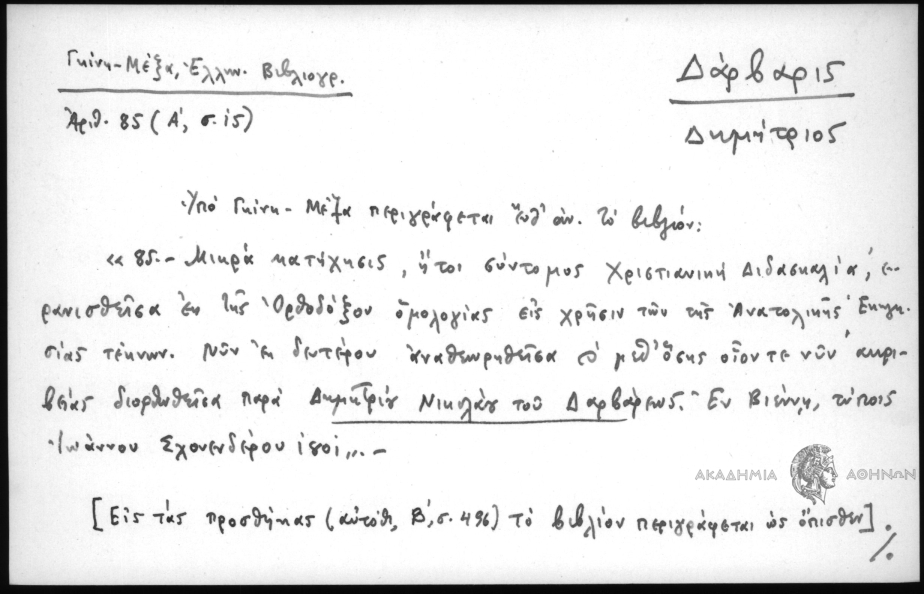 Γκίνη-Μέξα, Ἑλλην. Βιβλιογρ.
Ἀριθ. 85 (Α΄, σ. ις)
Δάρβαρις
Δημήτριος
Ὑπό Γκίνη - Μέξα περιγράφεται ὑπ' ἀν. τὸ βιβλίον:
«85.- Μικρά κατήχησις, ἤτοι σύντομος Χριστιανική Διδασκαλία, ἐ-
ρανισθεῖσα ἐκ τῆς Ὀρθοδόξου ὁμολογίας εἰς χρῆσιν τῶν τῆς Ἀνατολικῆς Ἐκκλη-
σίας τέκνων. Νῦν ἐκ δευτέρου ἀναθεωρηθεῖσα καὶ μεθ' ὅσης οἷόντε νῦν ἀκρι-
βείας διορθωθεῖσα παρά Δημητρίου Νικολάου τοῦ Δαρβάρεως. Ἐν Βιέννῃ, τύποις
Ἰωάννου Σχονενδέρου
[Εἰς τάς προσθήκας (αὐτόθι, Β΄, σ. 496) τὸ βιβλίον περιγράφεται ὡς ὄπισθεν].
./.
ΑΚΑΔΗΜΙΑ ΑΘΗΝΩΝ